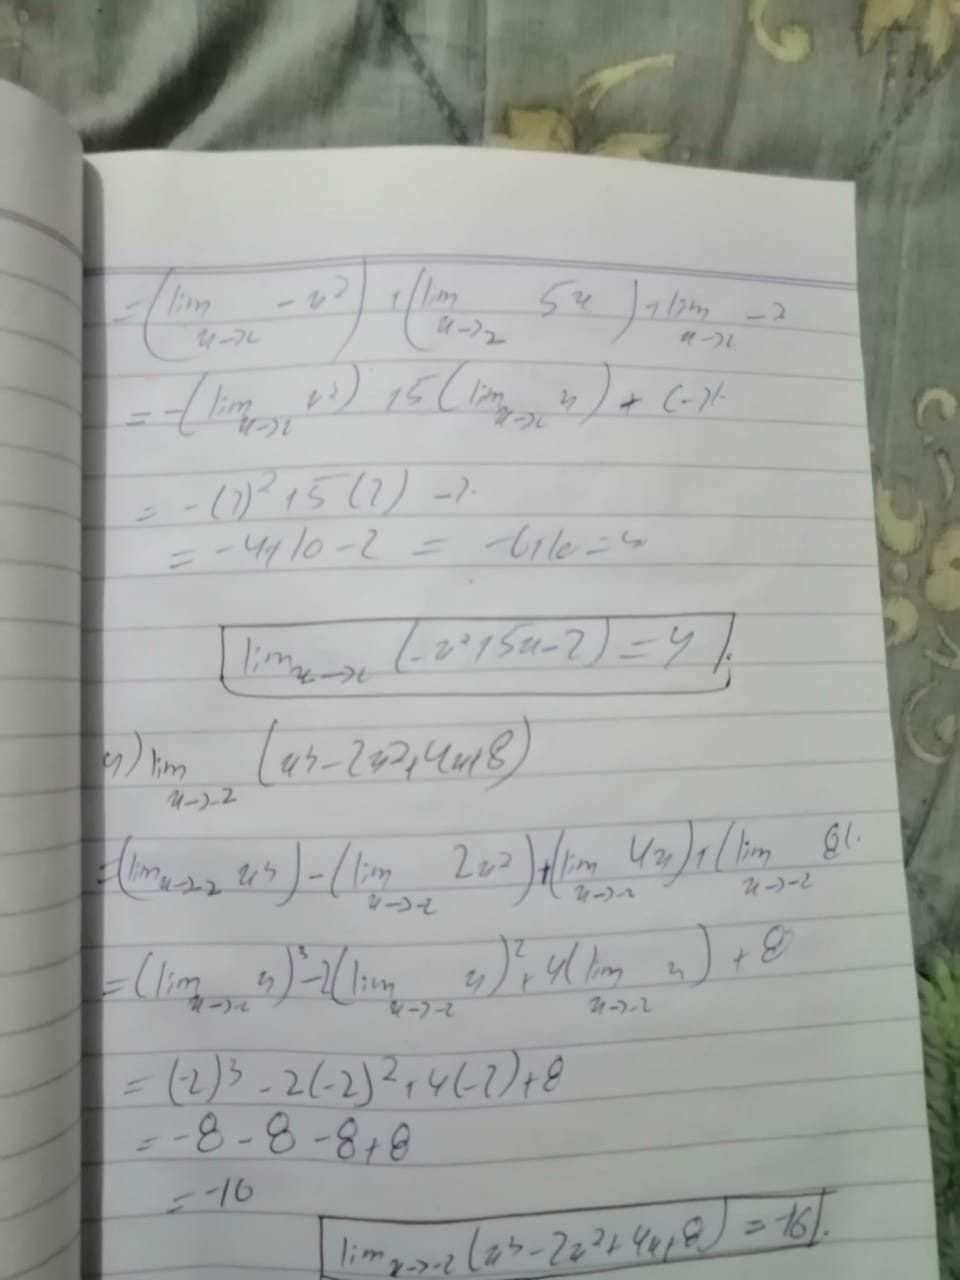 = (lim x→2 -x²) + (lim x→2 5x) + lim x→2 -2
= -(lim x→2 x²) + 5(lim x→2 x) + (-2)
= -(2)² + 5(2) - 2
= -4 + 10 - 2 = -6 + 10 = 4
lim x→2 (-x² + 5x - 2) = 4
4) lim x→-2 (x³ - 2x² + 4x + 8)
= (lim x→-2 x³) - (lim x→-2 2x²) + (lim x→-2 4x) + (lim x→-2 8)
= (lim x→-2 x)³ - 2(lim x→-2 x)² + 4(lim x→-2 x) + 8
= (-2)³ - 2(-2)² + 4(-2) + 8
= -8 - 8 - 8 + 8
= -16
lim x→-2 (x³ - 2x² + 4x + 8) = -16